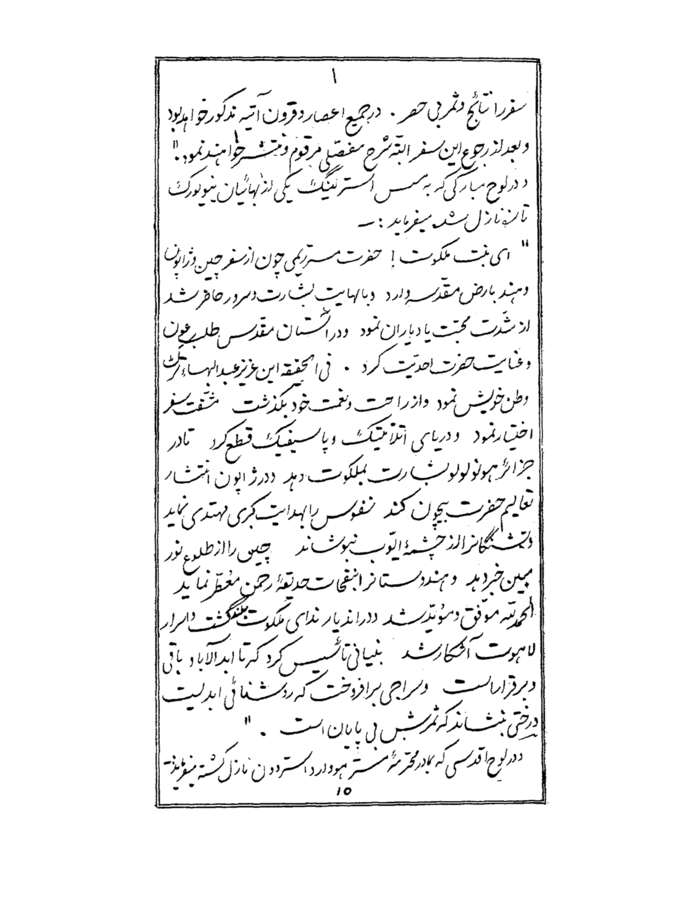 ۱
سفر را نتائج و ثمر بی حصر . در جمیع اعصار و قرون آتیه مذکور خواهد بود
و بعد از رجوع این سفر البته شرح مفصلی مرقوم و منتشر خواهند نمود ."
و در لوح مبارکی که به مس استرلینگ یکی از بهائیان نیویورک
نازل شده میفرماید :ــ
" ای بنت ملکوت ! حضرت مستر ریمی چون از سفر چین و ژاپون
و هند بارض مقدسه وارد و با نهایت بشارت و سرور حاضر شد
از شدت محبت یاد یاران نمود و در آستان مقدس طلب عون
و عنایت حضرت احدیت کرد . فی الحقیقه این عزیز عبدالبهاء ترک
وطن خویش نمود و از راحت و نعمت خود بگذشت مشقت سفر
اختیار نمود و دریای اتلانتیک و پاسیفیک قطع کرد تا در
جزائر هونولولو بشارت بملکوت دهد و در ژاپون انتشار
تعالیم حضرت بیچون کند نفوس را بهدایت کبری مهتدی نماید
و تشنگانرا از چشمهٔ ایوب بنوشاند چین را از طلوع نور
مبین خبر دهد و هندوستانرا بنفحات حدیقهٔ رحمن معطر نماید
الحمد لله موفق و مؤید شد و در اندیار ندای ملکوت بلند گشت و اسرار
لاهوت آشکار شد بنیانی تأسیس کرد که تا ابد الآباد باقی
و برقرار است و سراجی برافروخت که روشنائی ابدیست
درختی بنشاند که ثمرش بی پایان است . "
و در لوح اقدسی که بمادر محترمهٔ مستر هوارد استرودن نازل گشته میفرماید ــ
۱۵